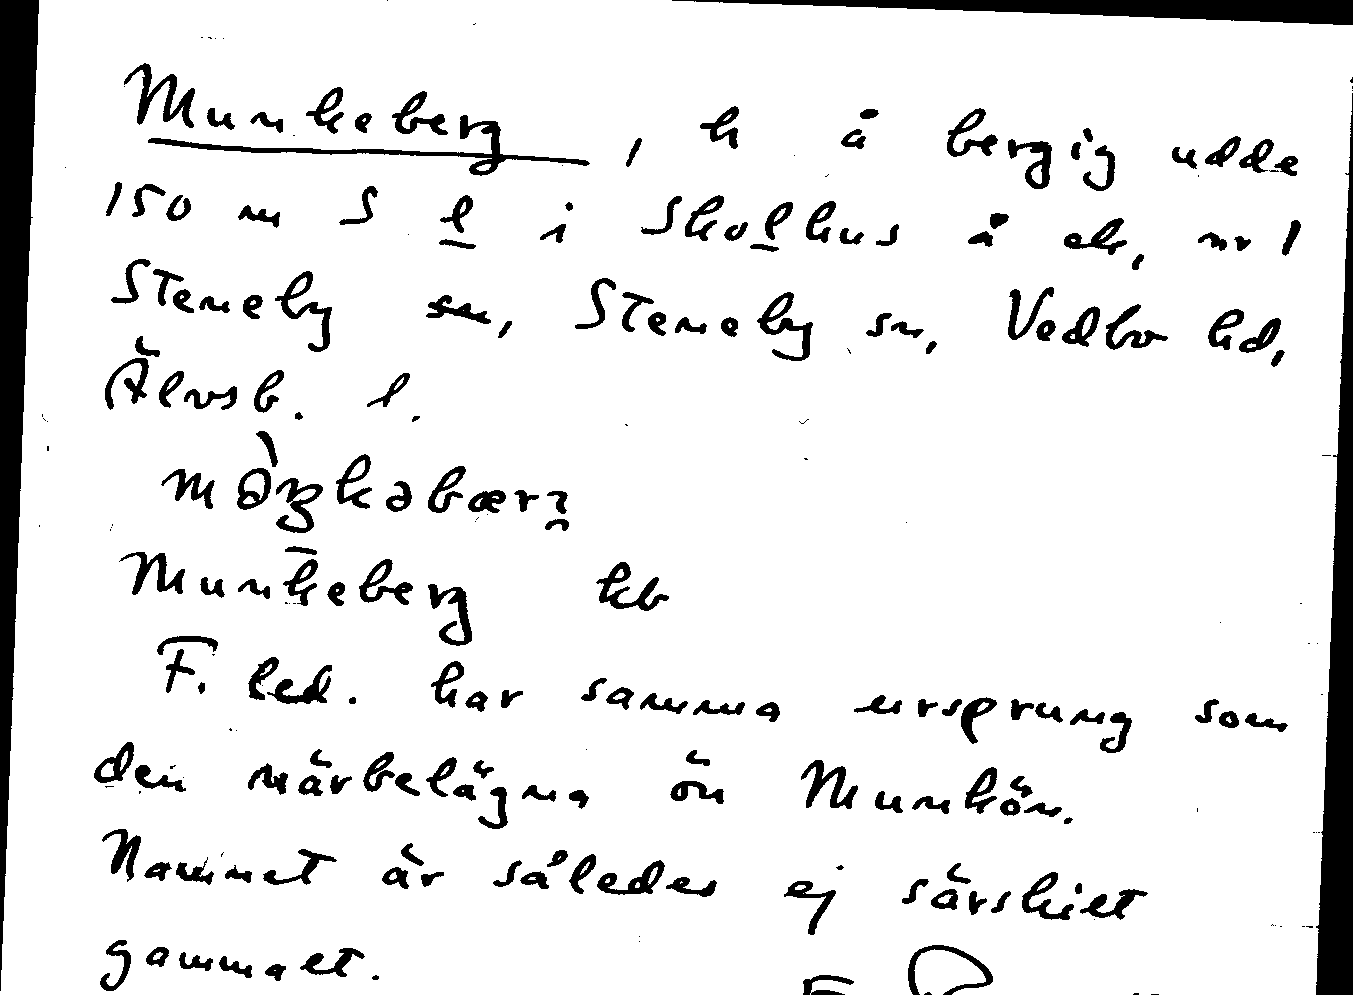 Munkeberg, h å bergig udde
150 m S l i Skolhus å ek, nr 1
Steneby sn, Steneby sn, Vedbo hd,
Älvsb. l.
Munkeberg kb
F. led. har samma ursprung som
den närbelägna ön Munkön.
Namnet är således ej särskilt
gammalt.